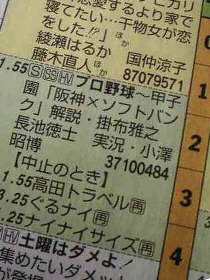 恋愛するより家で
寝てたい…干物女が恋
をした!?」ほか
綾瀬はるか 国仲涼子
藤木直人 87079571
1.55 S 65 HV プロ野球〜甲子
園「阪神×ソフトバン
ク」解説・掛布雅之
長池徳士 実況・小澤
昭博 37100484
【中止のとき】
1.55高田トラベル再
2.25ぐるナイ再
3.25ナイナイサイズ再
HV 土曜はダメよ!
集めたいダメッ
0
1
2
3
4